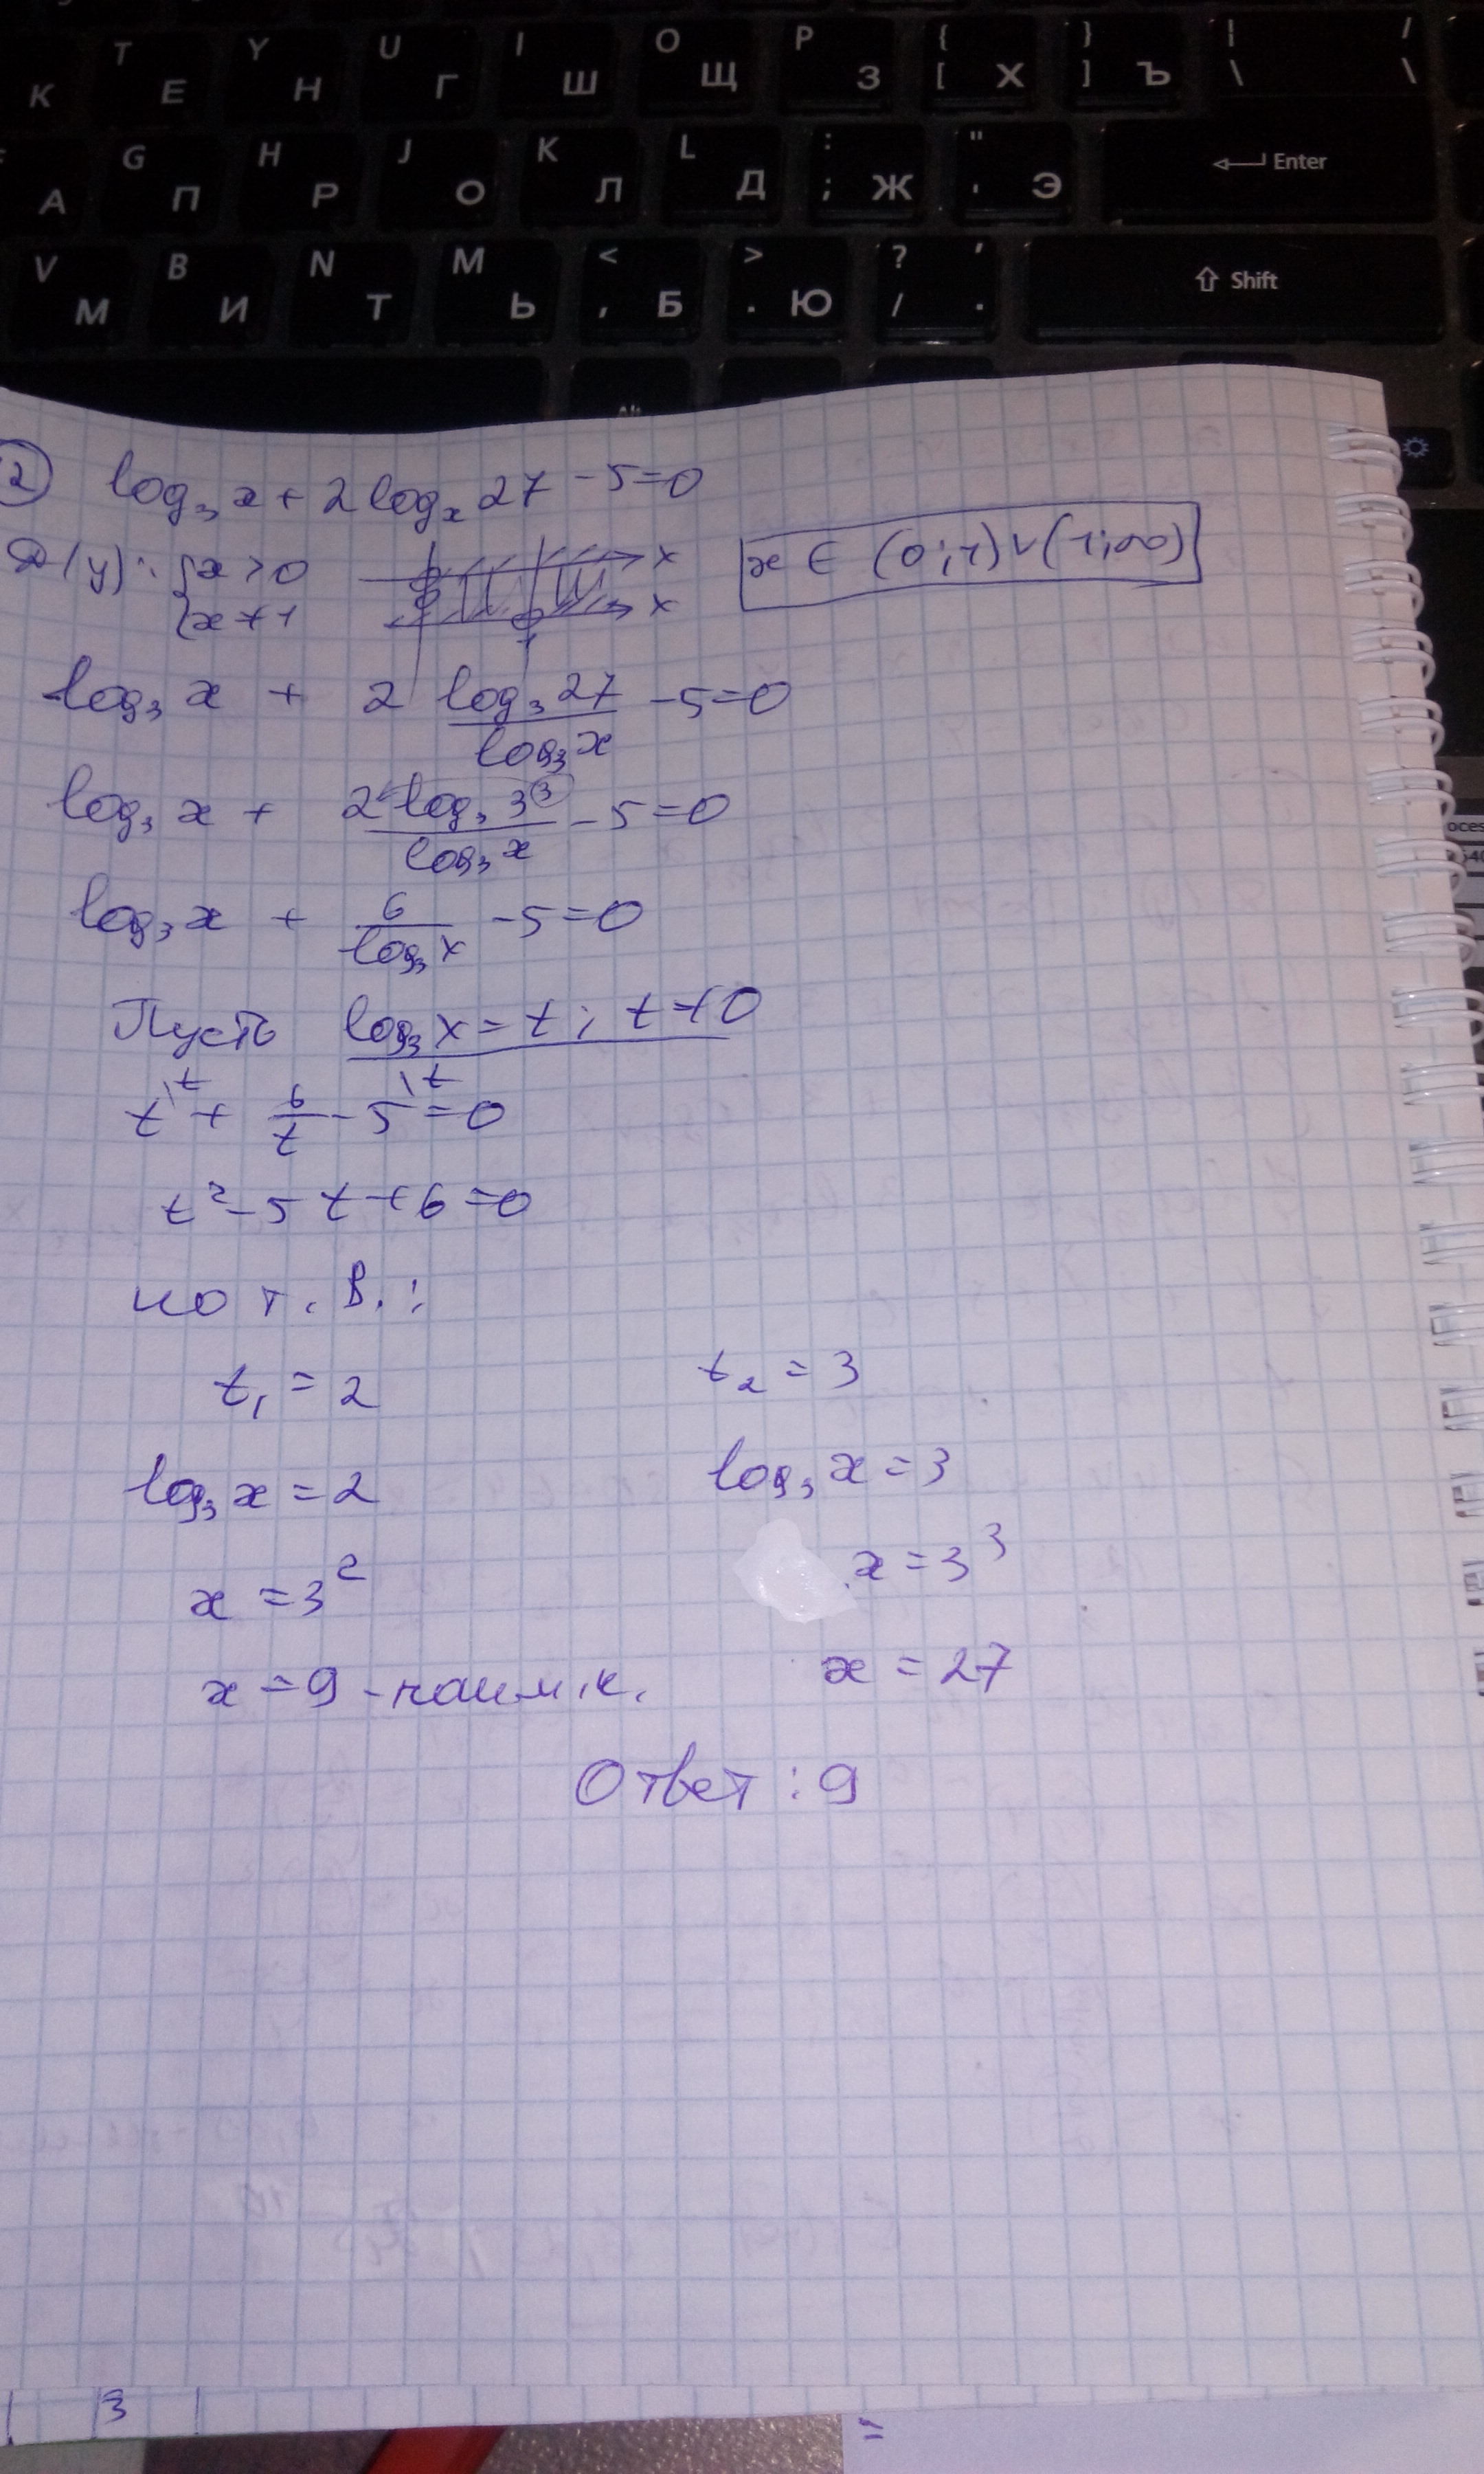 T Y U I O P { [ } ] | \ / \
К Е Н Г Ш Щ З Х Ъ
G H J K L : ; " ' Enter
А П Р О Л Д Ж Э
V B N M < , > . ? / ' . Shift
М И Т Ь Б Ю
2 log₃ x + 2 log_x 27 - 5 = 0
D(y): { x > 0 x x ∈ (0; 1) ∪ (1; ∞)
{ x ≠ 1 x
1
log₃ x + 2 log₃ 27 / log₃ x - 5 = 0
log₃ x + 2 log₃ 3³ / log₃ x - 5 = 0
log₃ x + 6 / log₃ x - 5 = 0
Пусть log₃ x = t; t ≠ 0
t\ᵗ + 6/t - 5\ᵗ = 0
t² - 5t + 6 = 0
по т. В.:
t₁ = 2 t₂ = 3
log₃ x = 2 log₃ x = 3
x = 3² x = 3³
x = 9 - наим. к. x = 27
Ответ: 9
3 =